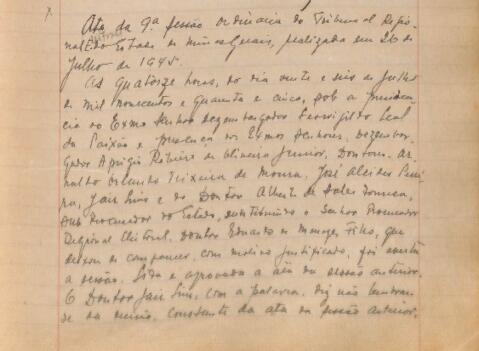 Ata da 9ª sessão ordinaria do Tribunal Regio-
nal Eleitoral do Estado de Minas Geraes, realizada em 26 de
Julho de 1945.
As quatorze horas, do dia vinte e seis de Julho
de mil novecentos e quarenta e cinco, sob a presiden-
cia do Exmo Senhor Desembargador Leal
da Paixão e presença dos Exmos Senhores, Dezembar-
gador Aprigio Ribeiro de Oliveira Junior, Doutores Ar-
naldo Orlando Teixeira de Moura, José Alcides Perei-
ra, Jair Lins e do Doutor Alberto de
Sub Procurador do Estado, substituindo o Senhor Procurador
Regional Eleitoral, Doutor Eduardo de Menezes Filho, que
deixou de comparecer, com motivo justificado, foi aberta
a sessão. Lida e aprovada a ata da sessão anterior.
O Doutor Jair Lins, com a palavra, diz não lembrar-
se da constante da ata da sessão anterior,